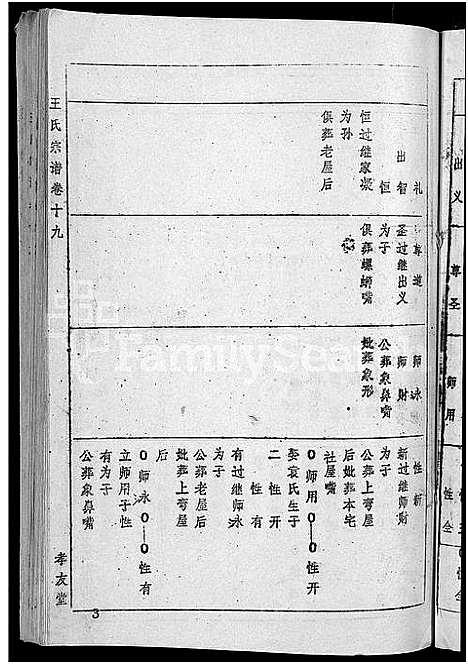 王氏宗谱卷十九
礼
出智
恒
恒过继家凝
为孙
俱葬老屋后
尊道
圣过继出义
为子
俱葬螺蛳嘴
师永
师财
公葬象鼻嘴
妣葬象形
性新
新过继师财
为子
公葬上弯屋
后妣葬本宅
社屋嘴
0师用0—0性开
娶袁氏生子
二性开
性有
有过继师永
为子
公葬老屋后
妣葬上弯屋
后
0师永0—0性有
立师用子性
有为子
公葬象鼻嘴
孝友堂
3
FamilySearch
出义
尊圣
师用
性全